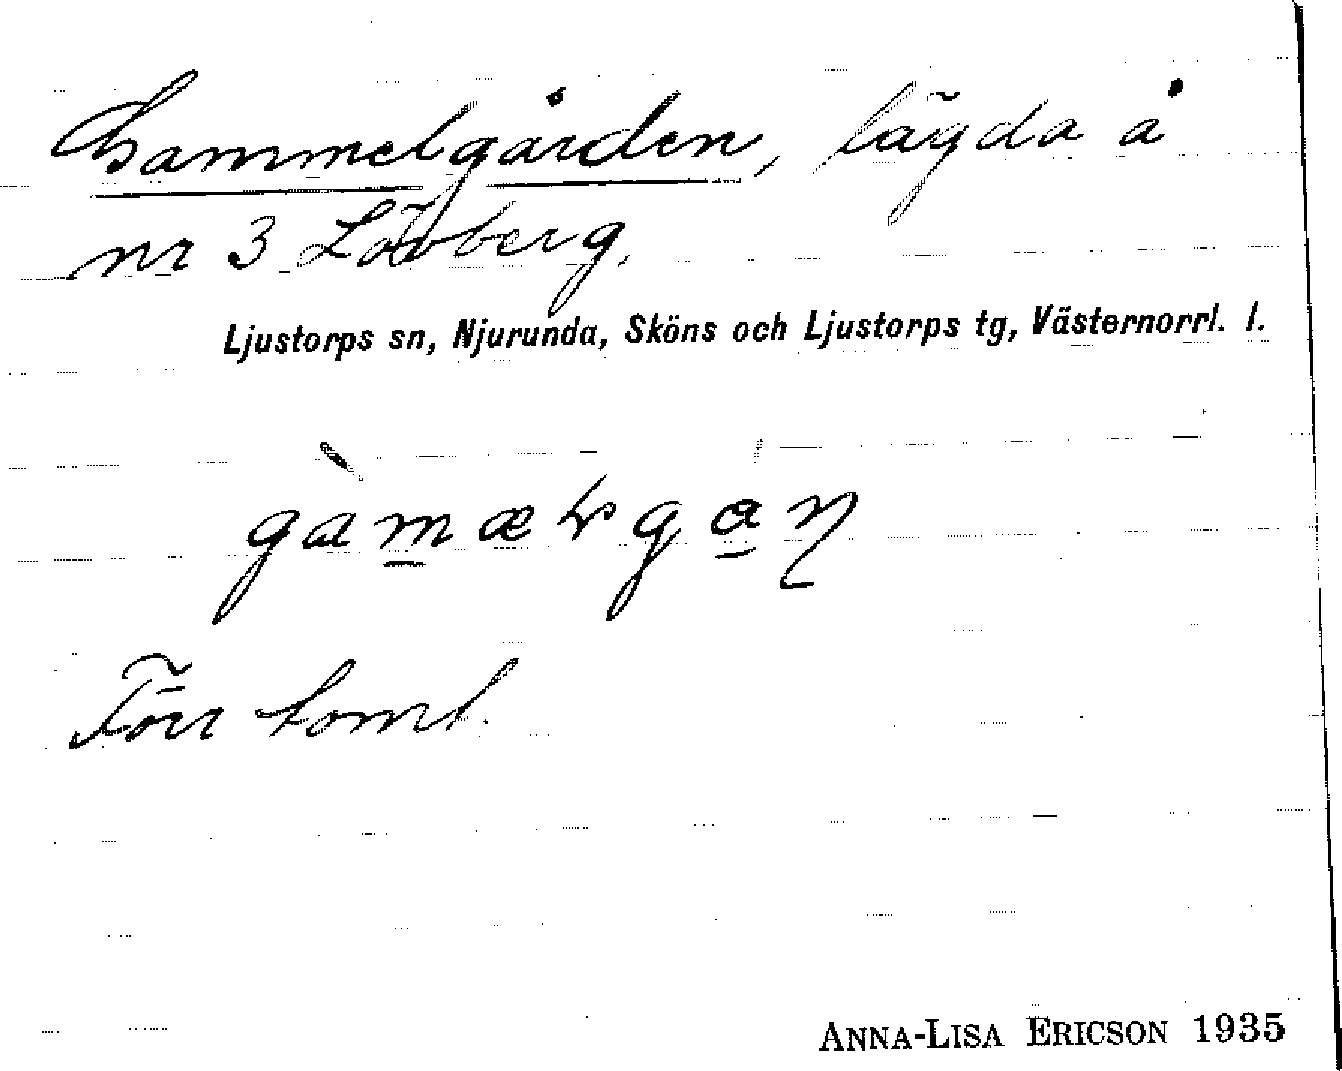 Gammelgården, lägda å
nr 3 Lövberg.
Ljustorps sn, Njurunda, Sköns och Ljustorps tg, Västernorrl. l.
gàmæłgaɳ
Förr tomt.
ANNA-LISA ERICSON 1935